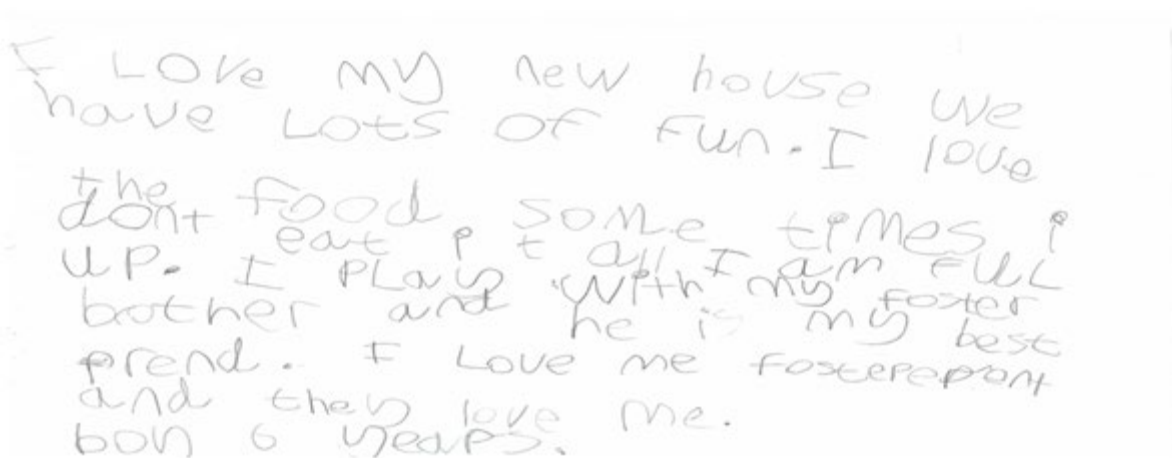 I LOVe MY new house We
have LOTS OF Fun. I love
the food some times i
dont eat it all I am FULL
UP. I PLay With my foster
bother and he is my best
prend. I Love me fosterepront
and they love Me.
boy 6 years.